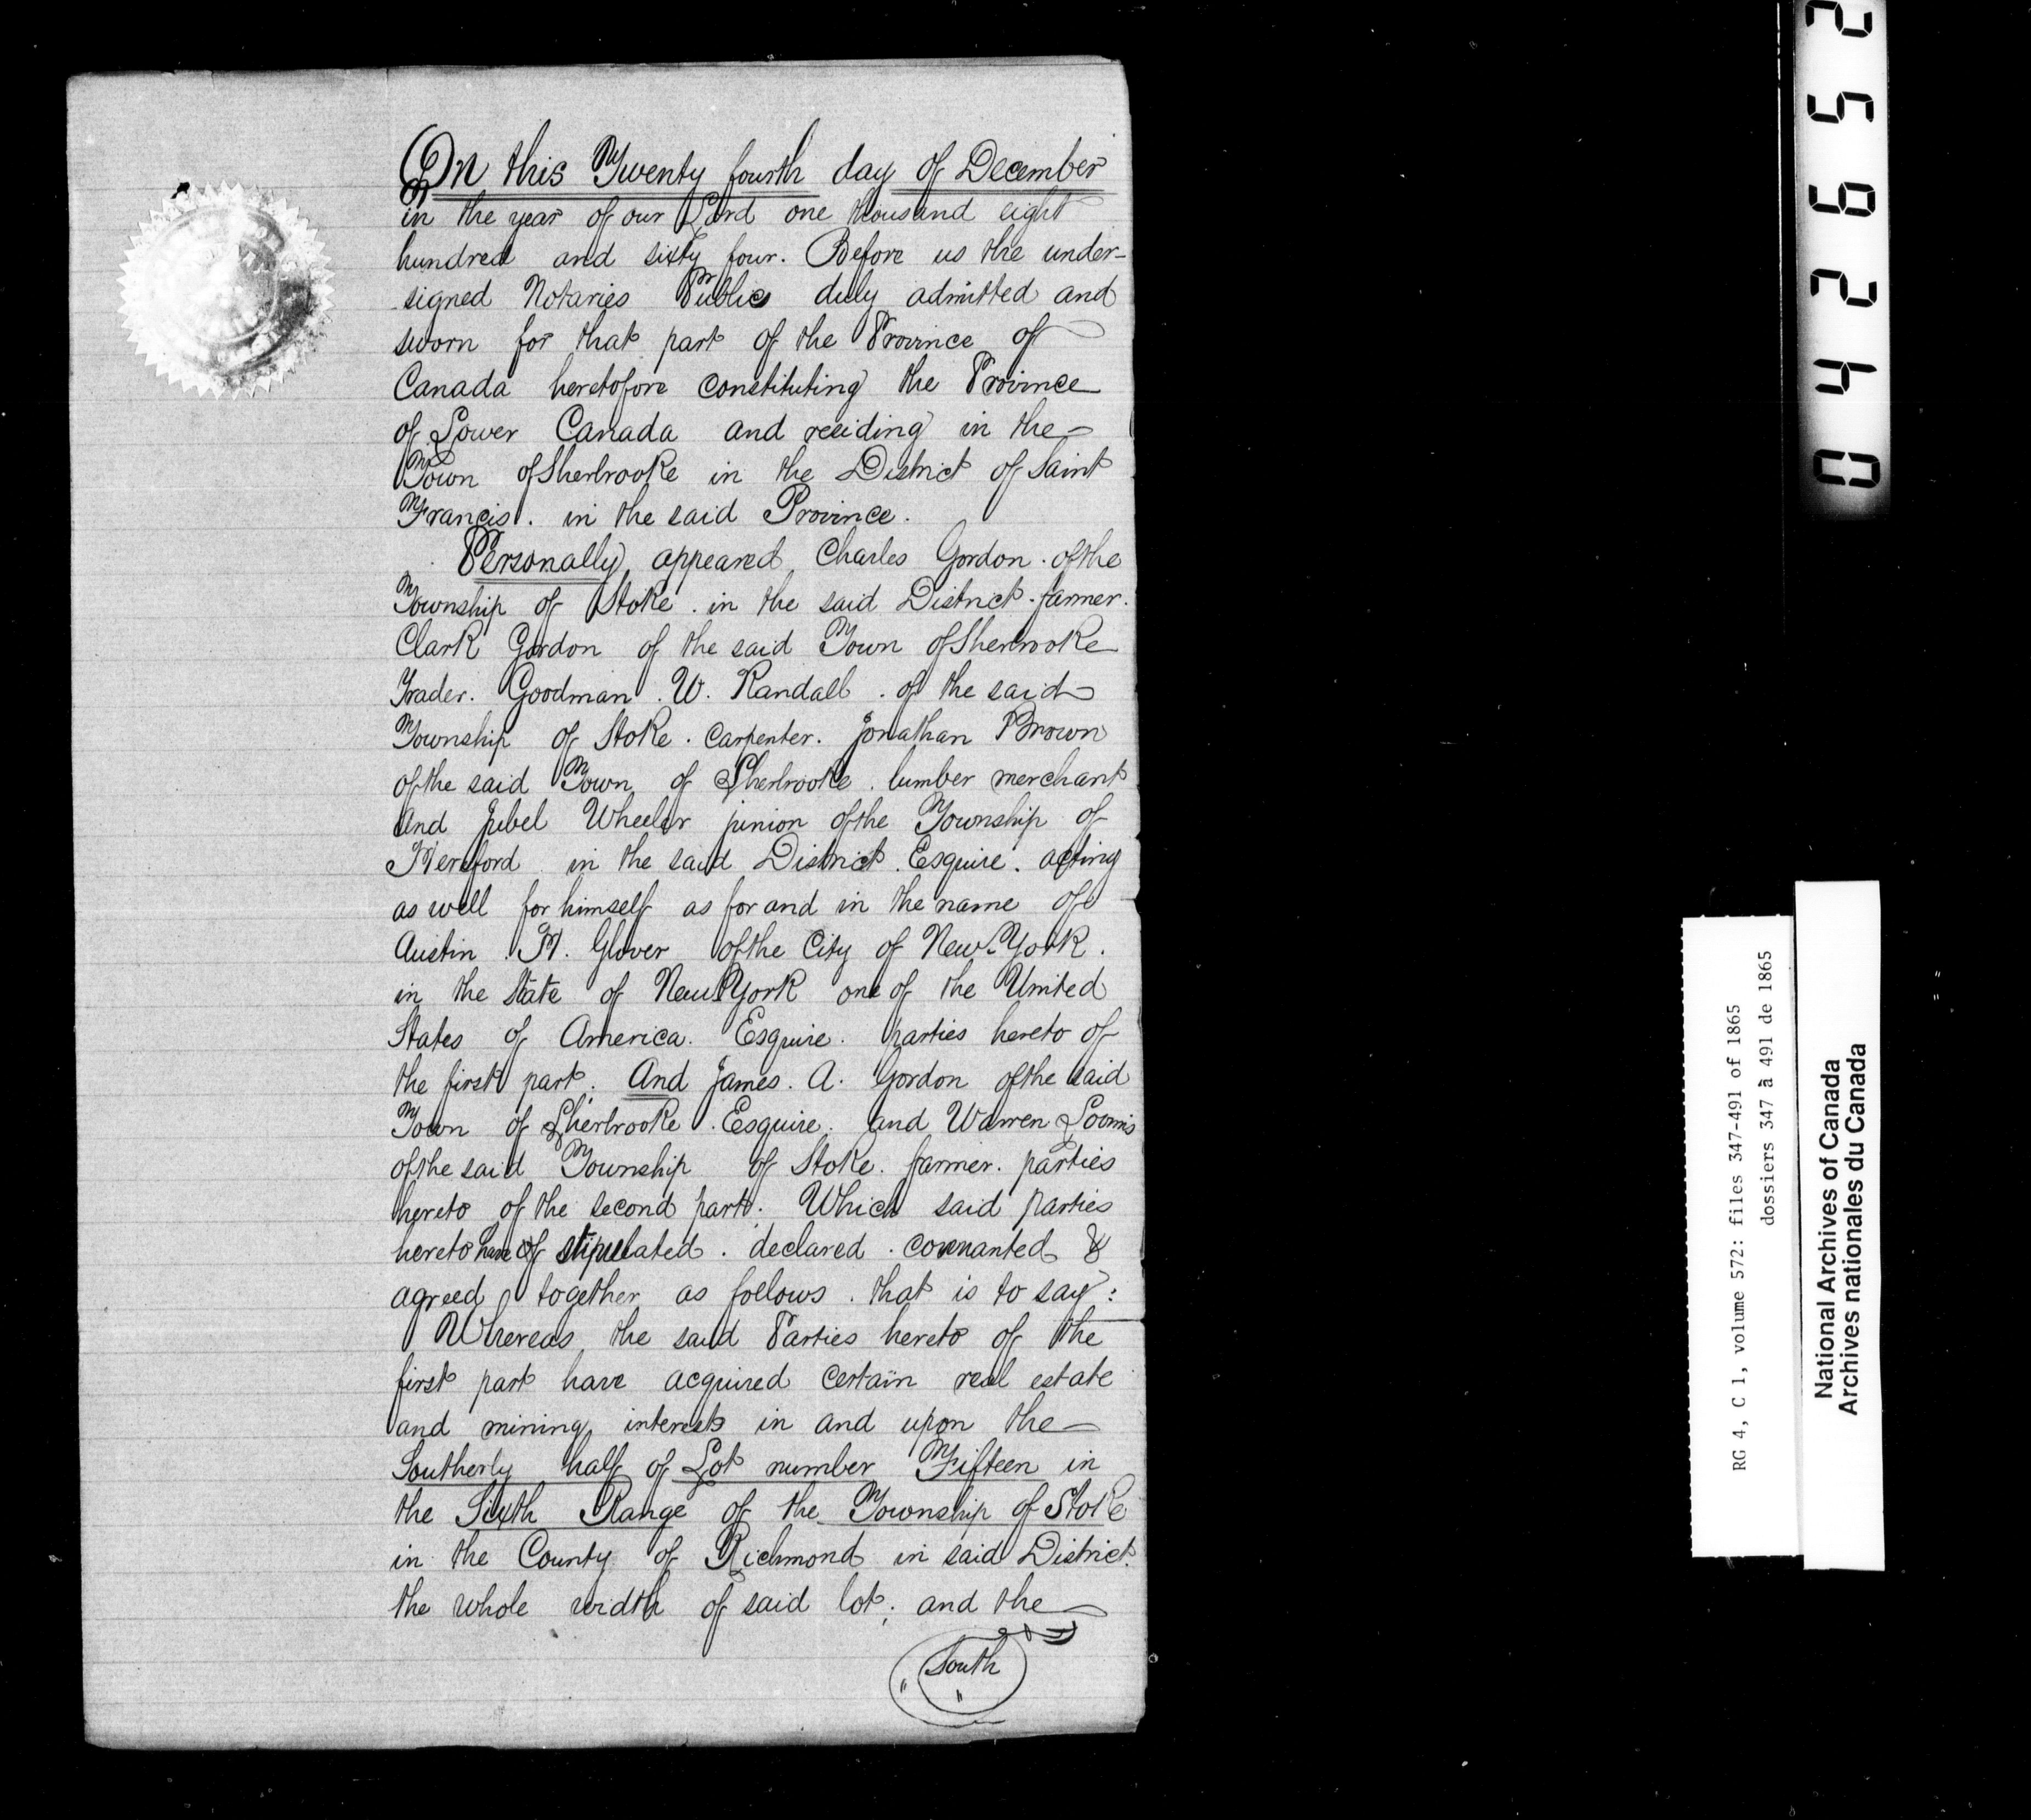 On this Twenty fourth day of December
in the year of our Lord one thousand eight
hundred and sixty four. Before us the under-
signed Notaries Public duly admitted and
sworn for that part of the Province of
Canada heretofore constituting the Province
of Lower Canada and residing in the
Town of Sherbrooke in the District of Saint
Francis. in the said Province.
Personally appeared Charles Gordon. of the
Township of Stoke. in the said District. farmer.
Clark Gordon of the said Town of Sherbrooke
Trader. Goodman. W. Randall. of the said
Township of Stoke. Carpenter. Jonathan Brown
of the said Town of Sherbrooke. lumber merchant
And Jubel Wheeler junior of the Township of
Hereford in the said District. Esquire. acting
as well for himself as for and in the name of
Austin. H. Glover of the City of New-York.
in the State of New York one of the United
States of America. Esquire. parties hereto of
the first part. And James. A. Gordon of the said
Town of Sherbrooke. Esquire. and Warren Loomis
of the said Township of Stoke. farmer. parties
hereto of the second part. Which said parties
hereto have stipulated. declared. covenanted &
agreed together as follows. that is to say:
Whereas the said Parties hereto of the
first part have acquired certain real estate
and mining interests in and upon the
Southerly half of Lot number Fifteen in
the Sixth Range of the Township of Stoke
in the County of Richmond in said District.
the whole width of said lot; and the
South
042652
RG 4, C 1, volume 572: files 347-491 of 1865
dossiers 347 à 491 de 1865
National Archives of Canada
Archives nationales du Canada